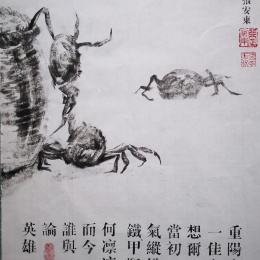 安東
重陽
一佳
想爾
當初
氣縱
鐵甲
何凜
而今
誰與
論
英雄